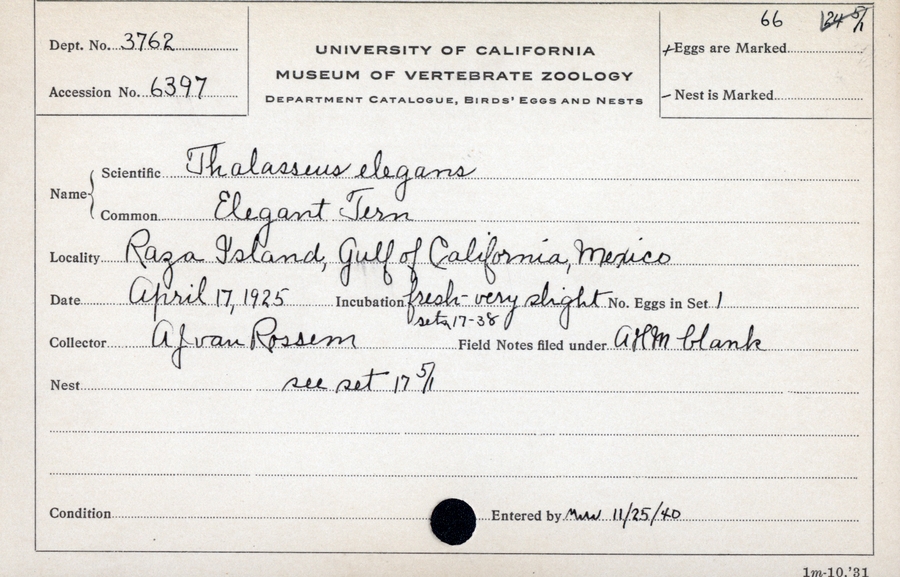 66 24 5/1
Dept. No. 3762
UNIVERSITY OF CALIFORNIA
+Eggs are Marked
MUSEUM OF VERTEBRATE ZOOLOGY
Accession No. 6397
DEPARTMENT CATALOGUE, BIRDS' EGGS AND NESTS
– Nest is Marked
Name { Scientific Thalasseus elegans
Common Elegant Tern
Locality Raza Island, Gulf of California, Mexico
Date April 17, 1925 Incubation fresh - very slight No. Eggs in Set 1
sets 17-38
Collector AJ van Rossem Field Notes filed under AHM blank
Nest see set 17 5/1
Condition Entered by 11/25/40
1m-10,'31